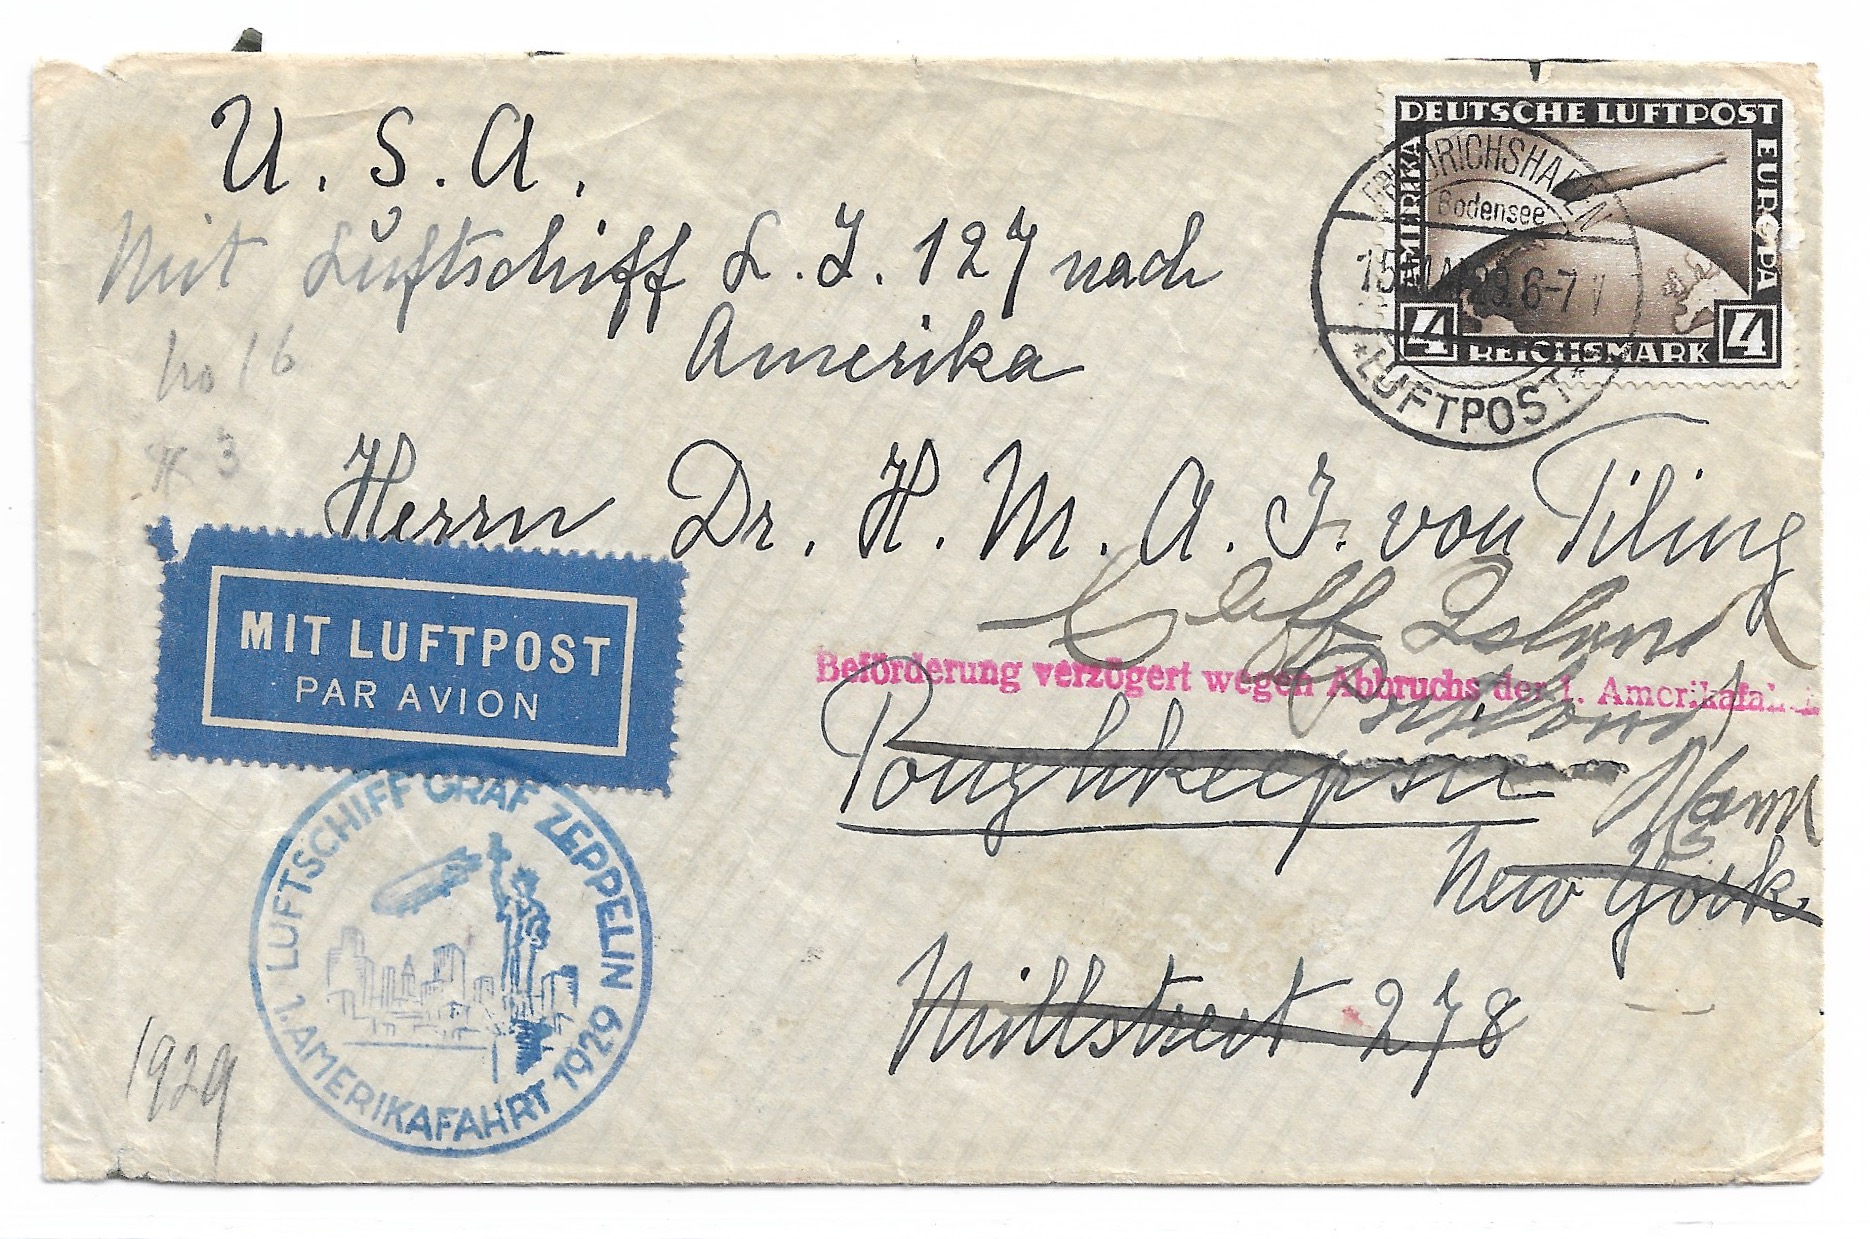 U. S. A.
Mit Luftschiff L. Z. 127 nach
Amerika
No 16
3
DEUTSCHE LUFTPOST
AMERIKA
EUROPA
4 REICHSMARK 4
FRIEDRICHSHAFEN
Bodensee
15. 29. 6-7
*LUFTPOST*
Herrn Dr. H. M. A. J. von Tiling
Cliff Island
Beförderung verzögert wegen Abbruchs der 1. Amerikafahrt
Portland
Poughkeepsie
Maine
New York
Millstreet 278
MIT LUFTPOST
PAR AVION
LUFTSCHIFF GRAF ZEPPELIN
1. AMERIKAFAHRT 1929
1929